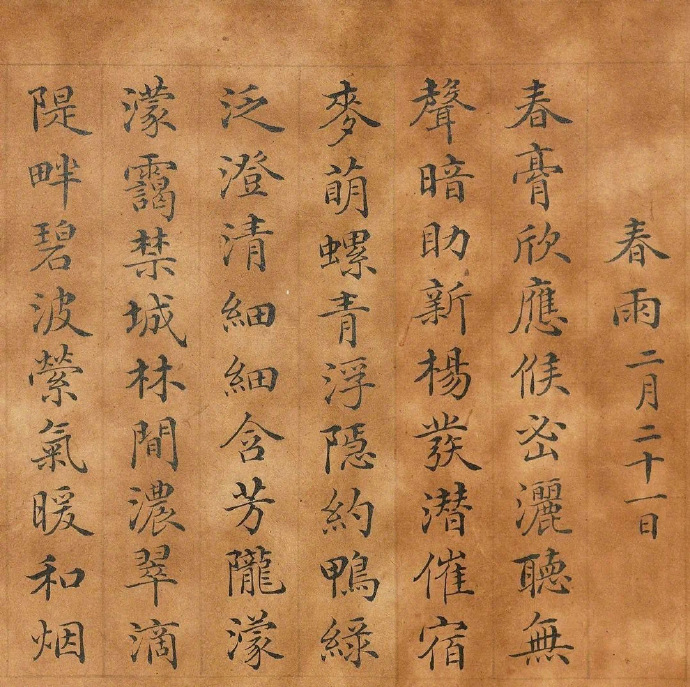 春雨二月二十一日
春膏欣應候密灑聽無
聲暗助新楊發潛催宿
麥萌螺青浮隱約鴨綠
泛澄清細細含芳隴濛
濛靄禁城林間濃翠滴
隄畔碧波縈氣暖和烟